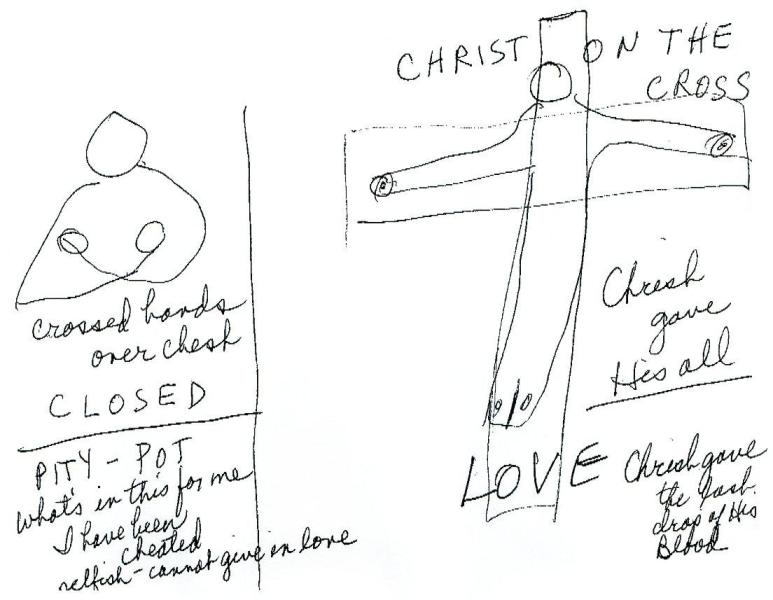 CHRIST ON THE
CROSS
crossed hands
over chest
CLOSED
PITY-POT
what's in this for me
I have been
cheated
selfish - cannot give in love
Christ
gave
His all
LOVE
Christ gave
the last
drop of His
Blood